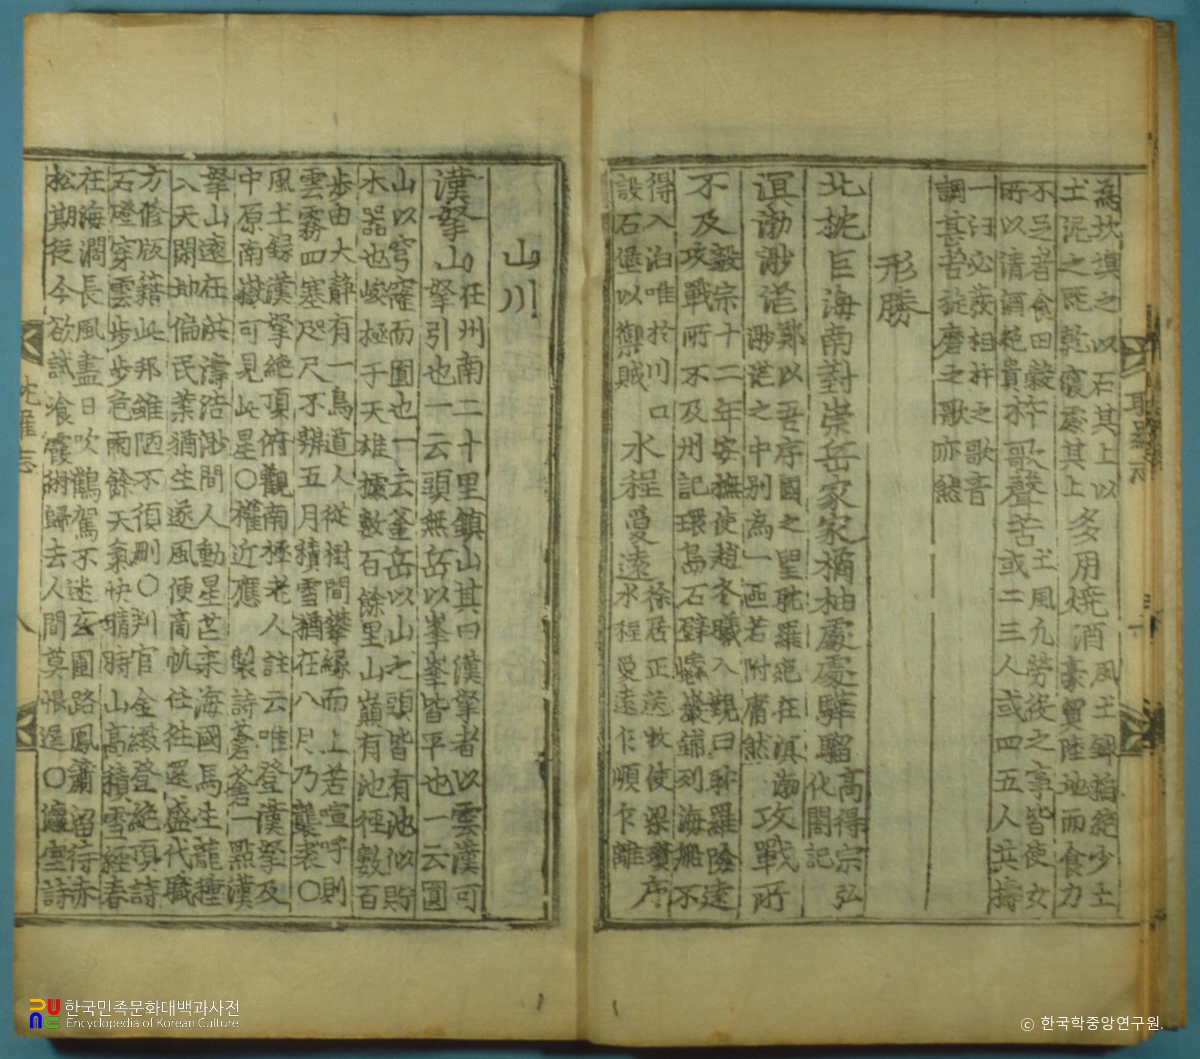 為坎填之以石其上以
土泥之旣乾寢處其上
多用燒酒
風土錄稻絶少土
豪貿陸地而食力
不足者食田穀
所以淸酒絶貴
歌聲苦
土風凡勞役之事皆使女
或二三人或四五人共擣
一臼必發相杵之歌音
調甚苦旋磨之歌亦然
形勝
北扼巨海南對崇岳家家橘柚處處驊騮
高得宗弘
化閣記
溟渤渺茫
鄭以吾序國之聖耽羅邈在溟海
渺茫之中别為一區若附庸然
攻戰所
不及
毅宗十二年安撫使趙冬曦入覲曰耽羅險遠
攻戰所不及州記環島石壁巉巖錯列海船不
得入泊唯於川口
設石堡以禦賊
水程憂遠
徐居正送牧使梁瓚序
水程憂遠乍順乍離
耽羅志
山川
漢拏山
在州南二十里鎭山其曰漢拏者以雲漢可
拏引也一云頭無岳以峯峯皆平也一云圓
山以穹窿而圓也一云釜岳以山之頭皆有池似貯
水器也峻極于天雄據數百餘里山巔有池徑數百
步由大靜有一鳥道人從樹間攀緣而上若喧呼則
雲霧四塞咫尺不辨五月積雪猶在八月乃襲裘○
風土錄漢拏絶頂俯觀南極老人註云唯登漢拏及
中原南嶽可見此星○權近應製詩蒼蒼一點漢
拏山遠在洪濤浩渺間人動星芒來海國馬生龍種
入天閑地偏民業猶生遂風便商帆任往還盛代職
方修版籍此邦雖陋不須刪○判官金緻登絶頂詩
石磴穿雲步步危雨餘天氣快晴時山高積雪經春
在海濶長風盡日吹鶴駕不迷玄圃路鳳簫留待赤
松期從今欲試飡霞術歸去人間莫悵遲○瀛壺詩
耽羅志
八
한국민족문화대백과사전
Encyclopedia of Korean Culture
© 한국학중앙연구원.